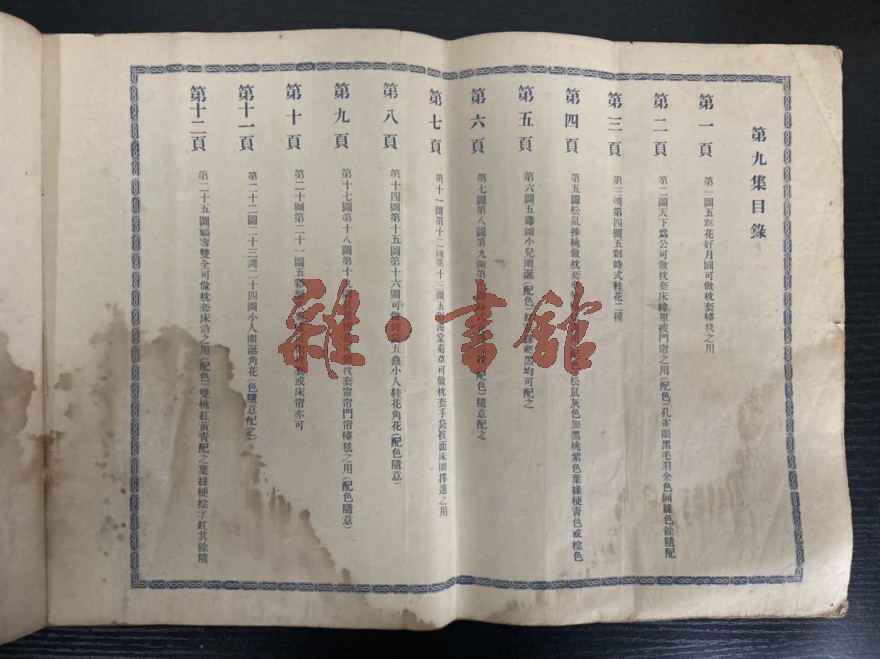 第九集目錄
第一頁 第一圖五彩花好月圓可做枕套檯毯之用
第二頁 第二圖天下爲公可做枕套床幃單被門帘之用(配色)孔雀眼黑毛羽金色回綠色餘隨配
第三頁 第三圖第四圖五彩時式鞋花二種
第四頁 第五圖松鼠捧桃做枕套 松鼠灰色加黑桃紫色葉綠梗青色或棕色
第五頁 第六圖五毒圖小兒圍涎(配色) 均可配之
第六頁 第七圖第八圖第九圖第 (配色)隨意配之
第七頁 第十一圖第十二圖第十三圖五彩海棠菊草可做枕套手袋被面床圍擇選之用
第八頁 第十四圖第十五圖第十六圖可做 五蟲小人鞋花角花(配色隨意)
第九頁 第十七圖第十八圖第十 枕套窗帘門帘檯毯之用(配色隨意)
第十頁 第二十圖第二十一圖五彩 或床帘亦可
第十一頁 第二十二圖二十三圖二十四圖小人圍涎角花(色隨意配之)
第十二頁 第二十五圖福壽雙全可做枕套床沿之用(配色)雙桃紅黃青配之葉綠梗棕字紅其餘隨
雜·書館